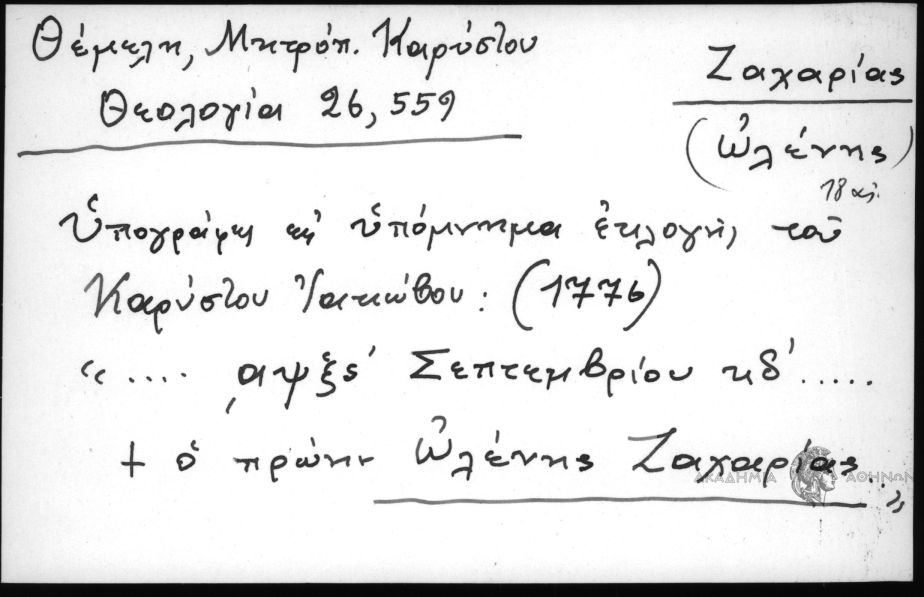 Θέμελη, Μητρόπ. Καρύστου
Θεολογία 26, 559
Ζαχαρίας
(Ὠλένης)
18 αἰ.
Ὑπογράφει εἰς ὑπόμνημα ἐκλογῆς τοῦ
Καρύστου Ἰακώβου: (1776)
"..... ͵αψξς´ Σεπτεμβρίου κδ´.....
+ ὁ πρώην Ὠλένης Ζαχαρίας."
ΑΚΑΔΗΜΙΑ ΑΘΗΝΩΝ